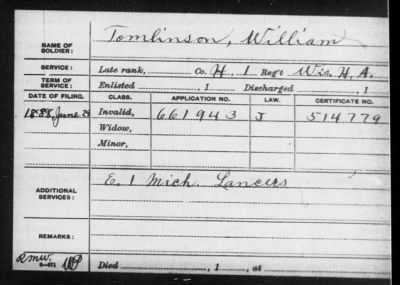 NAME OF SOLDIER: Tomlinson, William
SERVICE: Late rank, Co. H, 1 Reg't Wis. H. A.
TERM OF SERVICE: Enlisted , 1 Discharged , 1
DATE OF FILING. CLASS. APPLICATION NO. LAW. CERTIFICATE NO.
1888 June 29 Invalid, 661943 J 514779
Widow,
Minor,
ADDITIONAL SERVICES: E. 1 Mich. Lancers
REMARKS:
Died , 1 , at